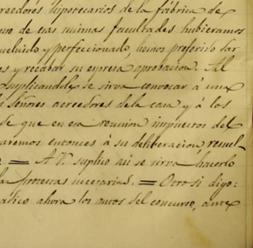 reedores hipotecarios de la fabrica de
mo de las mismas facultades hubieramos
cluido y perfeccionado, hemos preferido dar
es y recabar su expresa aprobacion. Al
suplicandole se sirva convocar á una
Señores acreedores de la casa y á los
de que en esa reunion impuestos del
aremos entonces á su deliberacion
= A V. suplico asi se sirva hacerlo
la protesta necesaria. = Otro si digo:
ahora los autos del concurso,